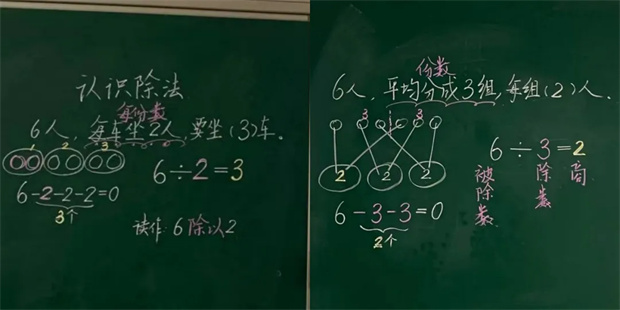 认识除法
每份数
6人，每车坐2人，要坐(3)车。
1 2 3
6-2-2-2=0
3个
6÷2=3
读作：6除以2
份数
6人，平均分成3组，每组(2)人。
3 3
2 2 2
6-3-3=0
2个
6÷3=2
被除数 除数 商